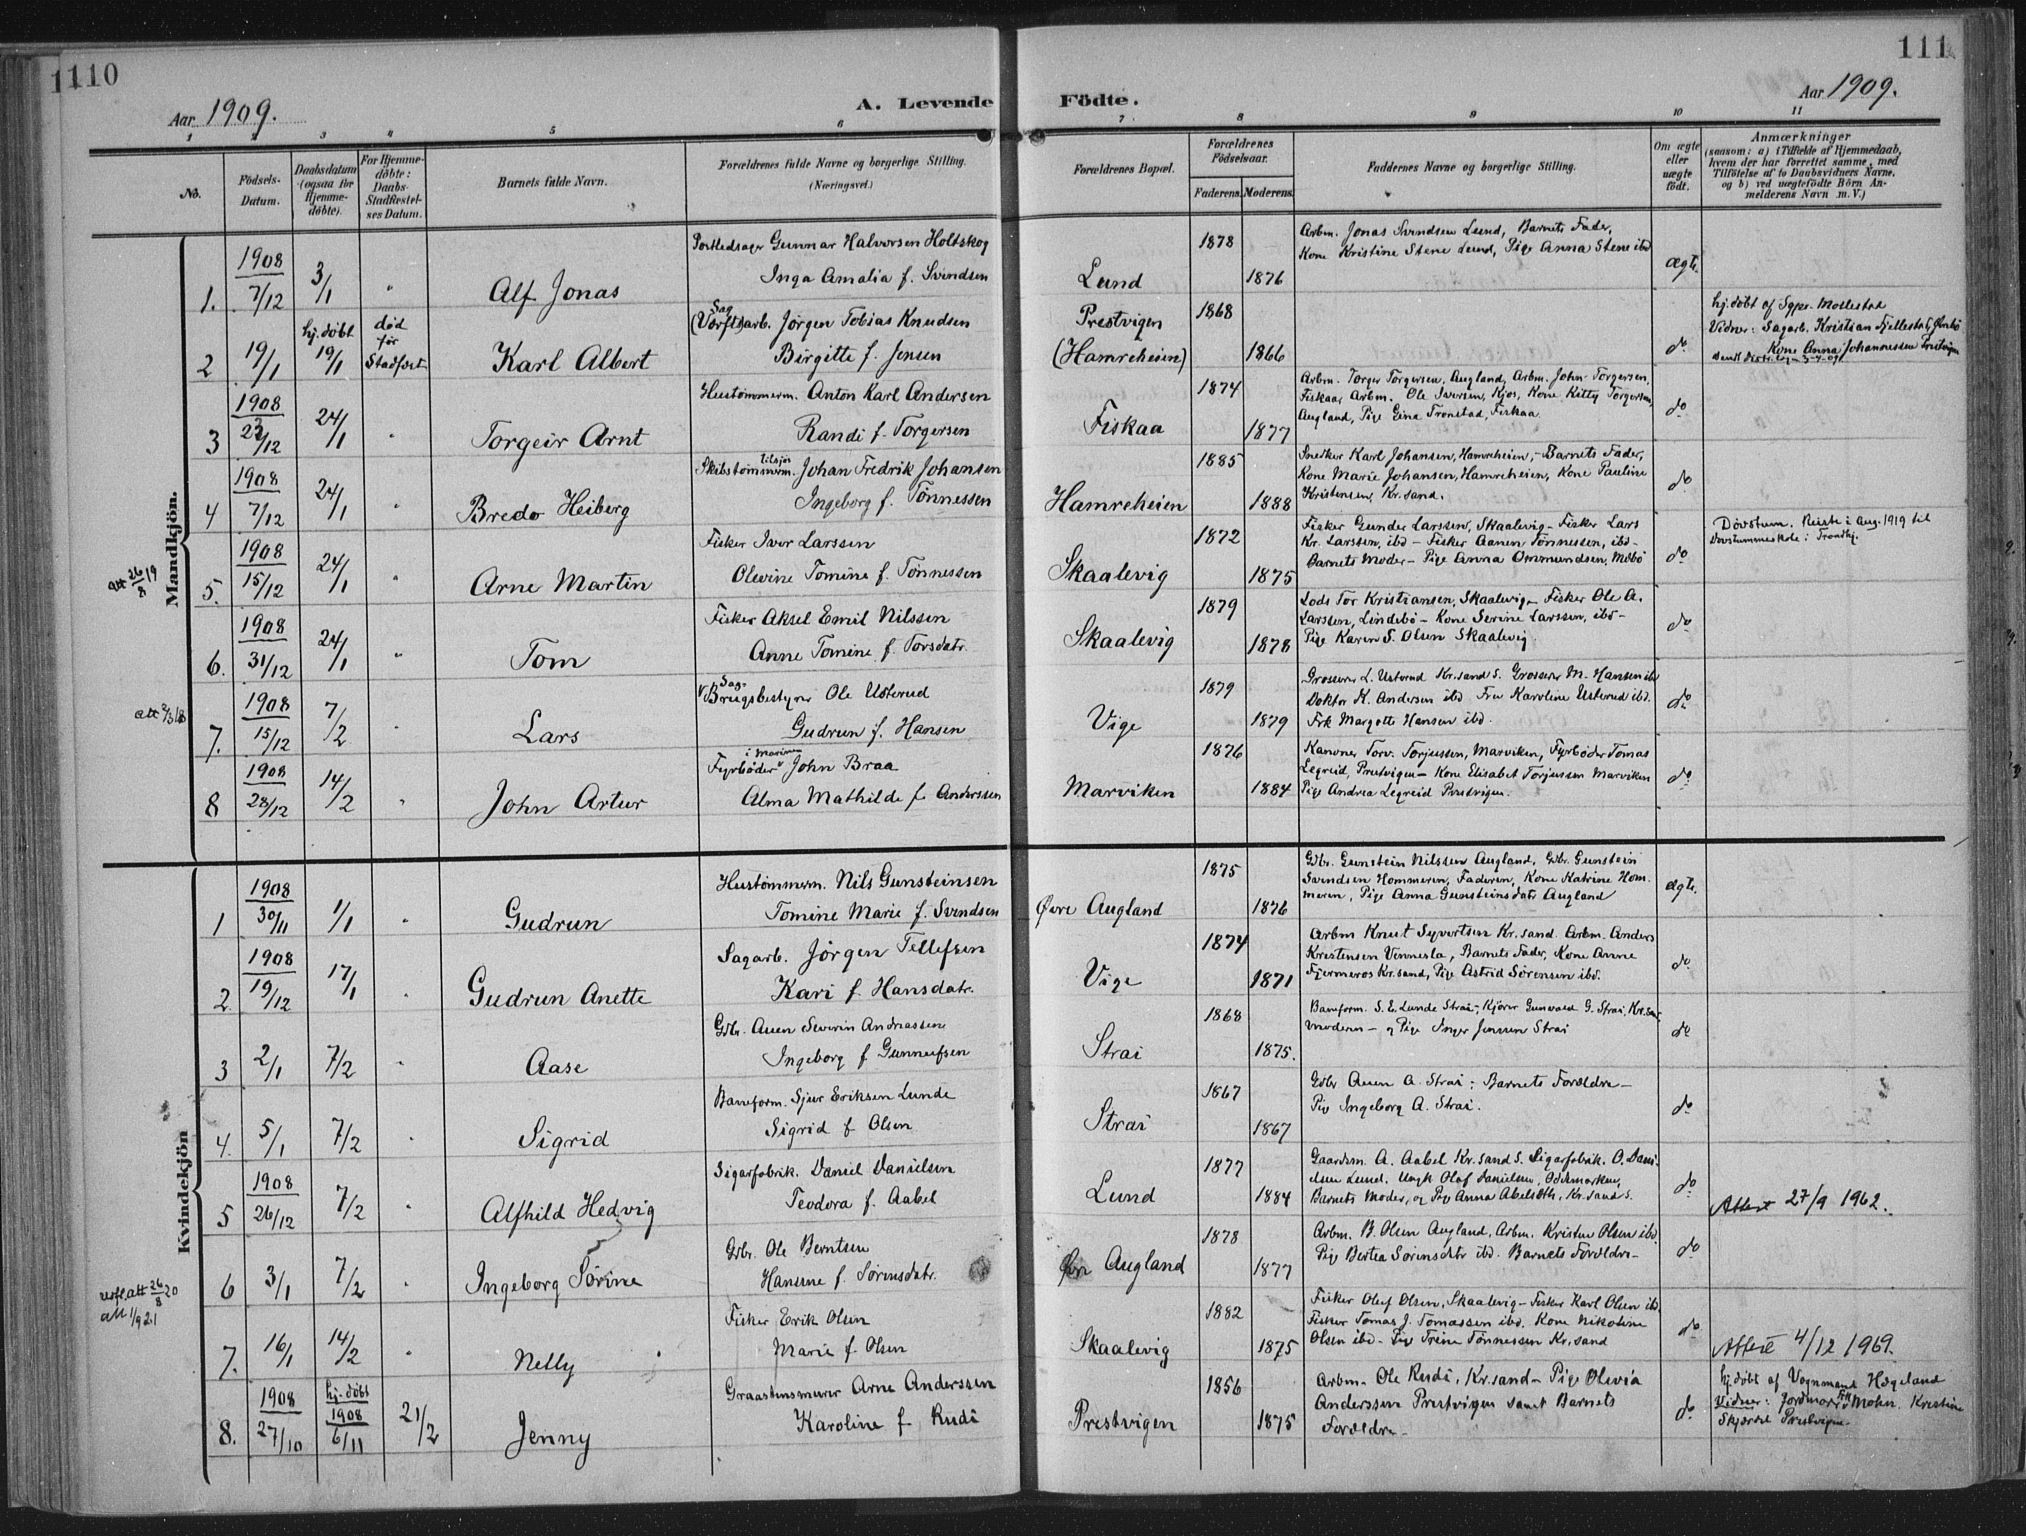 110
111
Aar 1909.
A. Levende Födte.
Aar 1909.
1 2 3 4 5 6 7 8 9 10 11
No.
Födsels-Datum.
Daabsdatum (ogsaa for Hjemmedöbte).
For Hjemmedöbte: Daabs-Stadfæstelses Datum.
Barnets fulde Navn.
Forældrenes fulde Navne og borgerlige Stilling.
(Næringsvei.)
Forældrenes Bopæl.
Forældrenes Födselsaar.
Faderens. Moderens.
Faddernes Navne og borgerlige Stilling.
Om ægte eller uægte födt.
Anmærkninger
(saasom: a) i Tilfælde af Hjemmedaab, hvem der har forrettet samme, med Tilföielse af to Daabsvidners Navne, og b) ved uægtefödte Börn Anmelderens Navn m. V.)
Mandkjön.
1. 1908 7/12 3/1 " Alf Jonas
Gunnar Halvorsen Holtskog
Inga Amalia f. Svendsen
Lund 1878 1876
Arbm. Jonas Svendsen Lund, Barnets Fader,
Kone Kristine Stene Lund, Pige Anna Stene ibd
ægte.
2 19/1 hj.døbt 19/1 død før Stadfæst. Karl Albert
Sag
(Værfts)arb. Jørgen Tobias Knudsen
Birgitte f. Jensen
Prestvigen
(Hamreheien) 1868 1866
do
hj. døbt af Sgpr. Mollestad
Vidner: Sagarb. Kristian Fjellestad,
Kone Anna Johannessen Prestvigen
3 1908 24/1 " Torgeir Arnt
Hustømmerm. Anton Karl Andersen
Randi f. Torgersen
Fiskaa 1874 1877
Arbm. Torger Torgersen, Augland, Arbm. John Torgersen,
Fiskaa, Arbm. Ole Iversen, Kjos, Kone Kitty Torgersen,
Augland, Pige Gina Tronstad, Fiskaa.
do
4 1908 7/12 24/1 " Bredo Heiberg
tilsjøs
Skibstømmerm. Johan Fredrik Johansen
Ingeborg f. Tønnessen
Hamreheien 1885 1888
Snedker Karl Johansen, Hamreheien, - Barnets Fader,
Kone Marie Johansen, Hamreheien, Kone Pauline
Kristensen, Kr.sand.
do
att 26/8 19
5. 1908 15/12 24/1 " Arne Martin
Fisker Iver Larssen
Olevine Tomine f. Tønnessen
Skaalevig 1872 1875
Fisker Gunder Larssen, Skaalevig - Fisker Lars
Kr. Larssen, ibd - Fisker Aanen Tønnessen, ibd -
Barnets Moder - Pige Anna Ommundsen, Møbø
do
Døvstum. Reiste i Aug. 1919 til
Døvstummeskole i Trondhj.
6. 1908 31/12 24/1 " Tom
Fisker Aksel Emil Nilssen
Anne Tomine f. Torsdatr.
Skaalevig 1879 1878
Lods Tor Kristiansen, Skaalevig - Fisker Ole A.
Larssen, Lindebø - Kone Serine Larssen, ibd -
Pige Karen S. Olsen Skaalevig.
do
7. 1908 15/12 7/2 " Lars
Sag-
Brugsbestyrer Ole Usterud
Gudrun f. Hansen
Vige 1879 1879
Grosserer L. Usterud Kr.sand S. Grosserer M. Hansen ibd
Doktor K. Andersen ibd. Fru Karoline Usterud ibd.
Frk Margotte Hansen ibd.
do
8 1908 28/12 14/2 " John Artur
i Marinen
Fyrbøder John Braa
Alma Mathilde f. Anderssen
Marviken 1876 1884
Torv. Torjussen, Marviken, Fyrbøder Tomas
Legreid, Prestvigen - Kone Elisabet Torjussen Marviken
Pige Andrea Legreid Prestvigen.
do
Kvindekjön
1 1908 30/11 1/1 " Gudrun
Hustømmerm. Nils Gunsteinsen
Tomine Marie f. Svendsen
Øvre Augland 1875 1876
Gdbr. Gunstein Nilssen Augland, Gdbr. Gunstein
Svendsen Hommeren, Faderen, Kone Katrine Hommeren, Pige Anna Gunsteinsdatr Augland
ægte.
2. 1908 19/12 17/1 " Gudrun Anette
Sagarb. Jørgen Tellefsen
Kari f. Hansdatr.
Vige 1874 1871
Arbm Knut Syvertsen Kr.sand. Arbm. Anders
Kristensen Vennesla, Barnets Fader, Kone Anne
Fjermeros Kr.sand, Pige Astrid Sørensen ibd.
do
3 2/1 7/2 " Aase
Gdbr. Auen Severin Andreassen
Ingeborg f. Gunnufsen
Strai 1868 1875.
Baneform. S. E. Lunde Strai; Kjører Gunvald G. Strai,
Moderen - og Pige Inger Jenssen Strai
do
4. 5/1 7/2 " Sigrid
Baneform. Sjur Eriksen Lunde
Sigrid f. Olsen
Strai 1867 1867
Gdbr Auen A. Strai; Barnets Forældre -
Pige Ingeborg A. Strai.
do
5 1908 26/12 7/2 " Alfhild Hedvig
Sigarfabrik. Daniel Danielsen
Teodora f. Aabel
Lund 1877 1884
Gaardsm. A. Aabel Kr.sand S. Sigarfabrik. O. Danielsen Lund. Ungk Olaf Danielsen, Oddernarken,
Barnets Moder, og Pige Anna Abelseth, Kr.sand S.
do
Attest 27/9 1962.
6 3/1 7/2 " Ingeborg Sørine
Gdbr. Ole Berntsen
Hansine f. Sørensdatr.
Øvre Augland 1878 1877
Arbm. B. Olsen Augland, Arbm. Kristen Olsen ibd.
Pige Bertea Sørensdatr ibd. Barnets Forældre -
do
att 26/8 20
att 1/9 21
7. 16/1 14/2 " Nelly
Fisker Erik Olsen
Marie f. Olsen
Skaalevig 1882 1875
Fisker Oluf Olsen, Skaalevig - Fisker Karl Olsen ibd.
Fisker Tomas J. Tomassen ibd. Kone Nikoline
Olsen ibd - Pige Trine Tønnessen Kr.sand
do
Attest 4/12 1969.
8. 1908 27/10 hj.døbt 1908 6/11 21/2 Jenny
Graastensmurer Arne Anderssen
Karoline f. Rudi
Prestvigen 1856 1875
Arbm. Ole Rudi, Kr.sand - Pige Olivia
Anderssen Prestvigen samt Barnets
Forældre -
do
hj.døbt af Vognmand Hægeland
Vidner: Jordmor Mohn. Kristine
Prestvigen